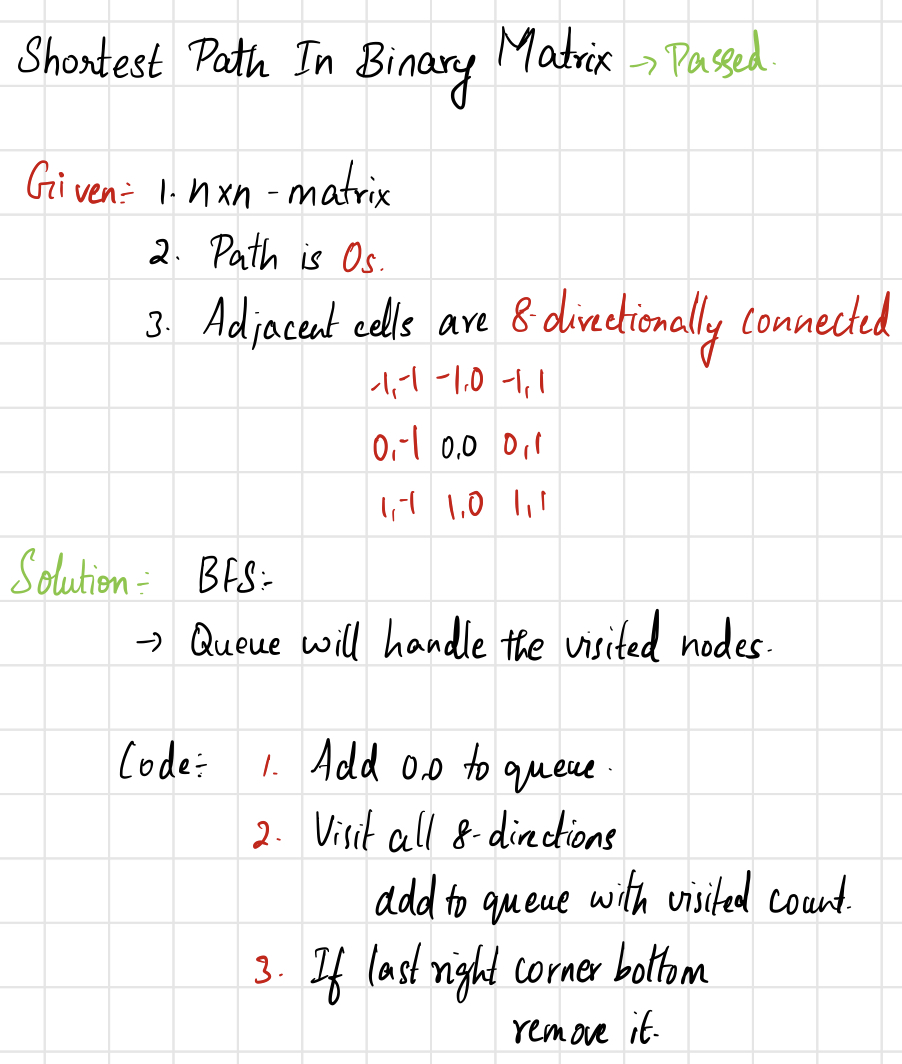 Shortest Path In Binary Matrix → Passed.
Given:- 1. nxn - matrix
2. Path is 0s.
3. Adjacent cells are 8-directionally connected
-1,-1 -1,0 -1,1
0,-1 0,0 0,1
1,-1 1,0 1,1
Solution:- BFS:-
→ Queue will handle the visited nodes.
Code:- 1. Add 0,0 to queue.
2. Visit all 8-directions
add to queue with visited count.
3. If last right corner bottom
remove it.